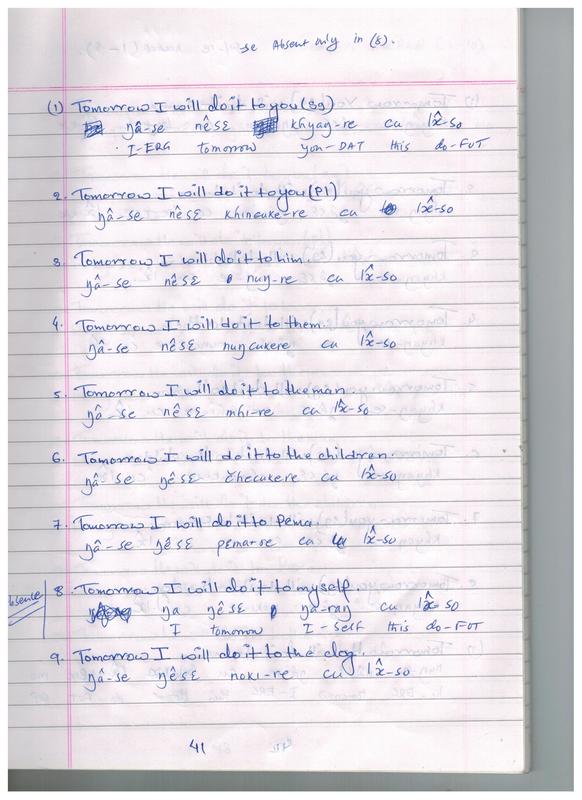 -se Absent only in (8).
(1) Tomorrow I will do it to you (sg)
ŋâ-se nêsɛ khyaŋ-re cu lx̂-so
I-ERG tomorrow you-DAT this do-FUT
2. Tomorrow I will do it to you (Pl)
ŋâ-se nêsɛ khincuke-re cu lx̂-so
3. Tomorrow I will do it to him.
ŋâ-se nêsɛ nuŋ-re cu lx̂-so
4. Tomorrow I will do it to them.
ŋâ-se nêsɛ nuŋcukere cu lx̂-so
5. Tomorrow I will do it to the man
ŋâ-se nêsɛ mhi-re cu lx̂-so
6. Tomorrow I will do it to the children.
ŋâ-se ŋêsɛ čhecukere cu lx̂-so
7. Tomorrow I will do it to Pema.
ŋâ-se ŋêsɛ pema-re cu lx̂-so
8. Tomorrow I will do it to myself.
ŋa ŋêsɛ ŋa-raŋ cu lx̂-so
I tomorrow I-self this do-FUT
9. Tomorrow I will do it to the dog
ŋâ-se ŋêsɛ noki-re cu lx̂-so
41